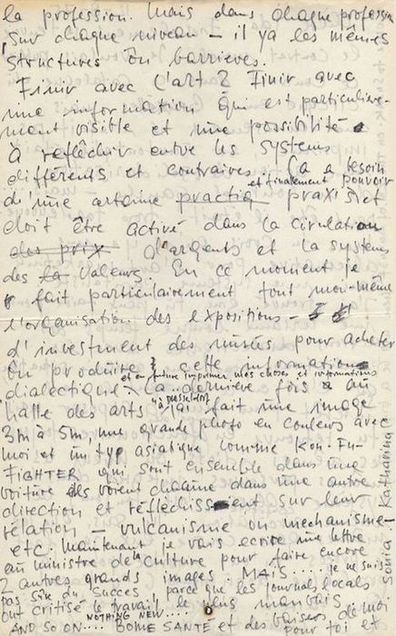 la profession. Mais dans chaque profession
sur chaque niveau - il y a les mêmes
structures on barrieres.
Finir avec l'art? Finir avec
une information qui est particulière-
ment visible et une possibilité
à reflêchir entre les systems
différents et contraires. Ça a besoin
d'une certaine practiq praxis et
et finalement pouvoir
doit être activé dans la circulation
des prix d'argents et la systems
des la Valeurs. En ce moment je
fait particulairement tout moi-même
l'organisation des expositions -
d'investment des musées pour acheter
ou produire cette information
dialectique. La dernière fois au
et en future imprimer mes choses et informations
halle des arts j'ai fait une image
3m à 5m, une grande photo en couleurs avec
moi et un typ asiatique comme Kon-Fu-
FIGHTER qui sont ensemble dans une
voiture ils voient chacune dans une autre
direction et reflêchissent sur leur
relation - vulcanisme on mechanisme -
etc. Maintenant je vais ecrire une lettre
au ministre de la culture pour faire encore
2 autres grands images. MAIS.... je ne suis
pas sûr du succes parce que les journals locals
ont critisé le travail le plus mauvais
NOTHING NEW....
AND SO ON... BONNE SANTÉ et des baisers de moi
pour toi et
sonia Katharina